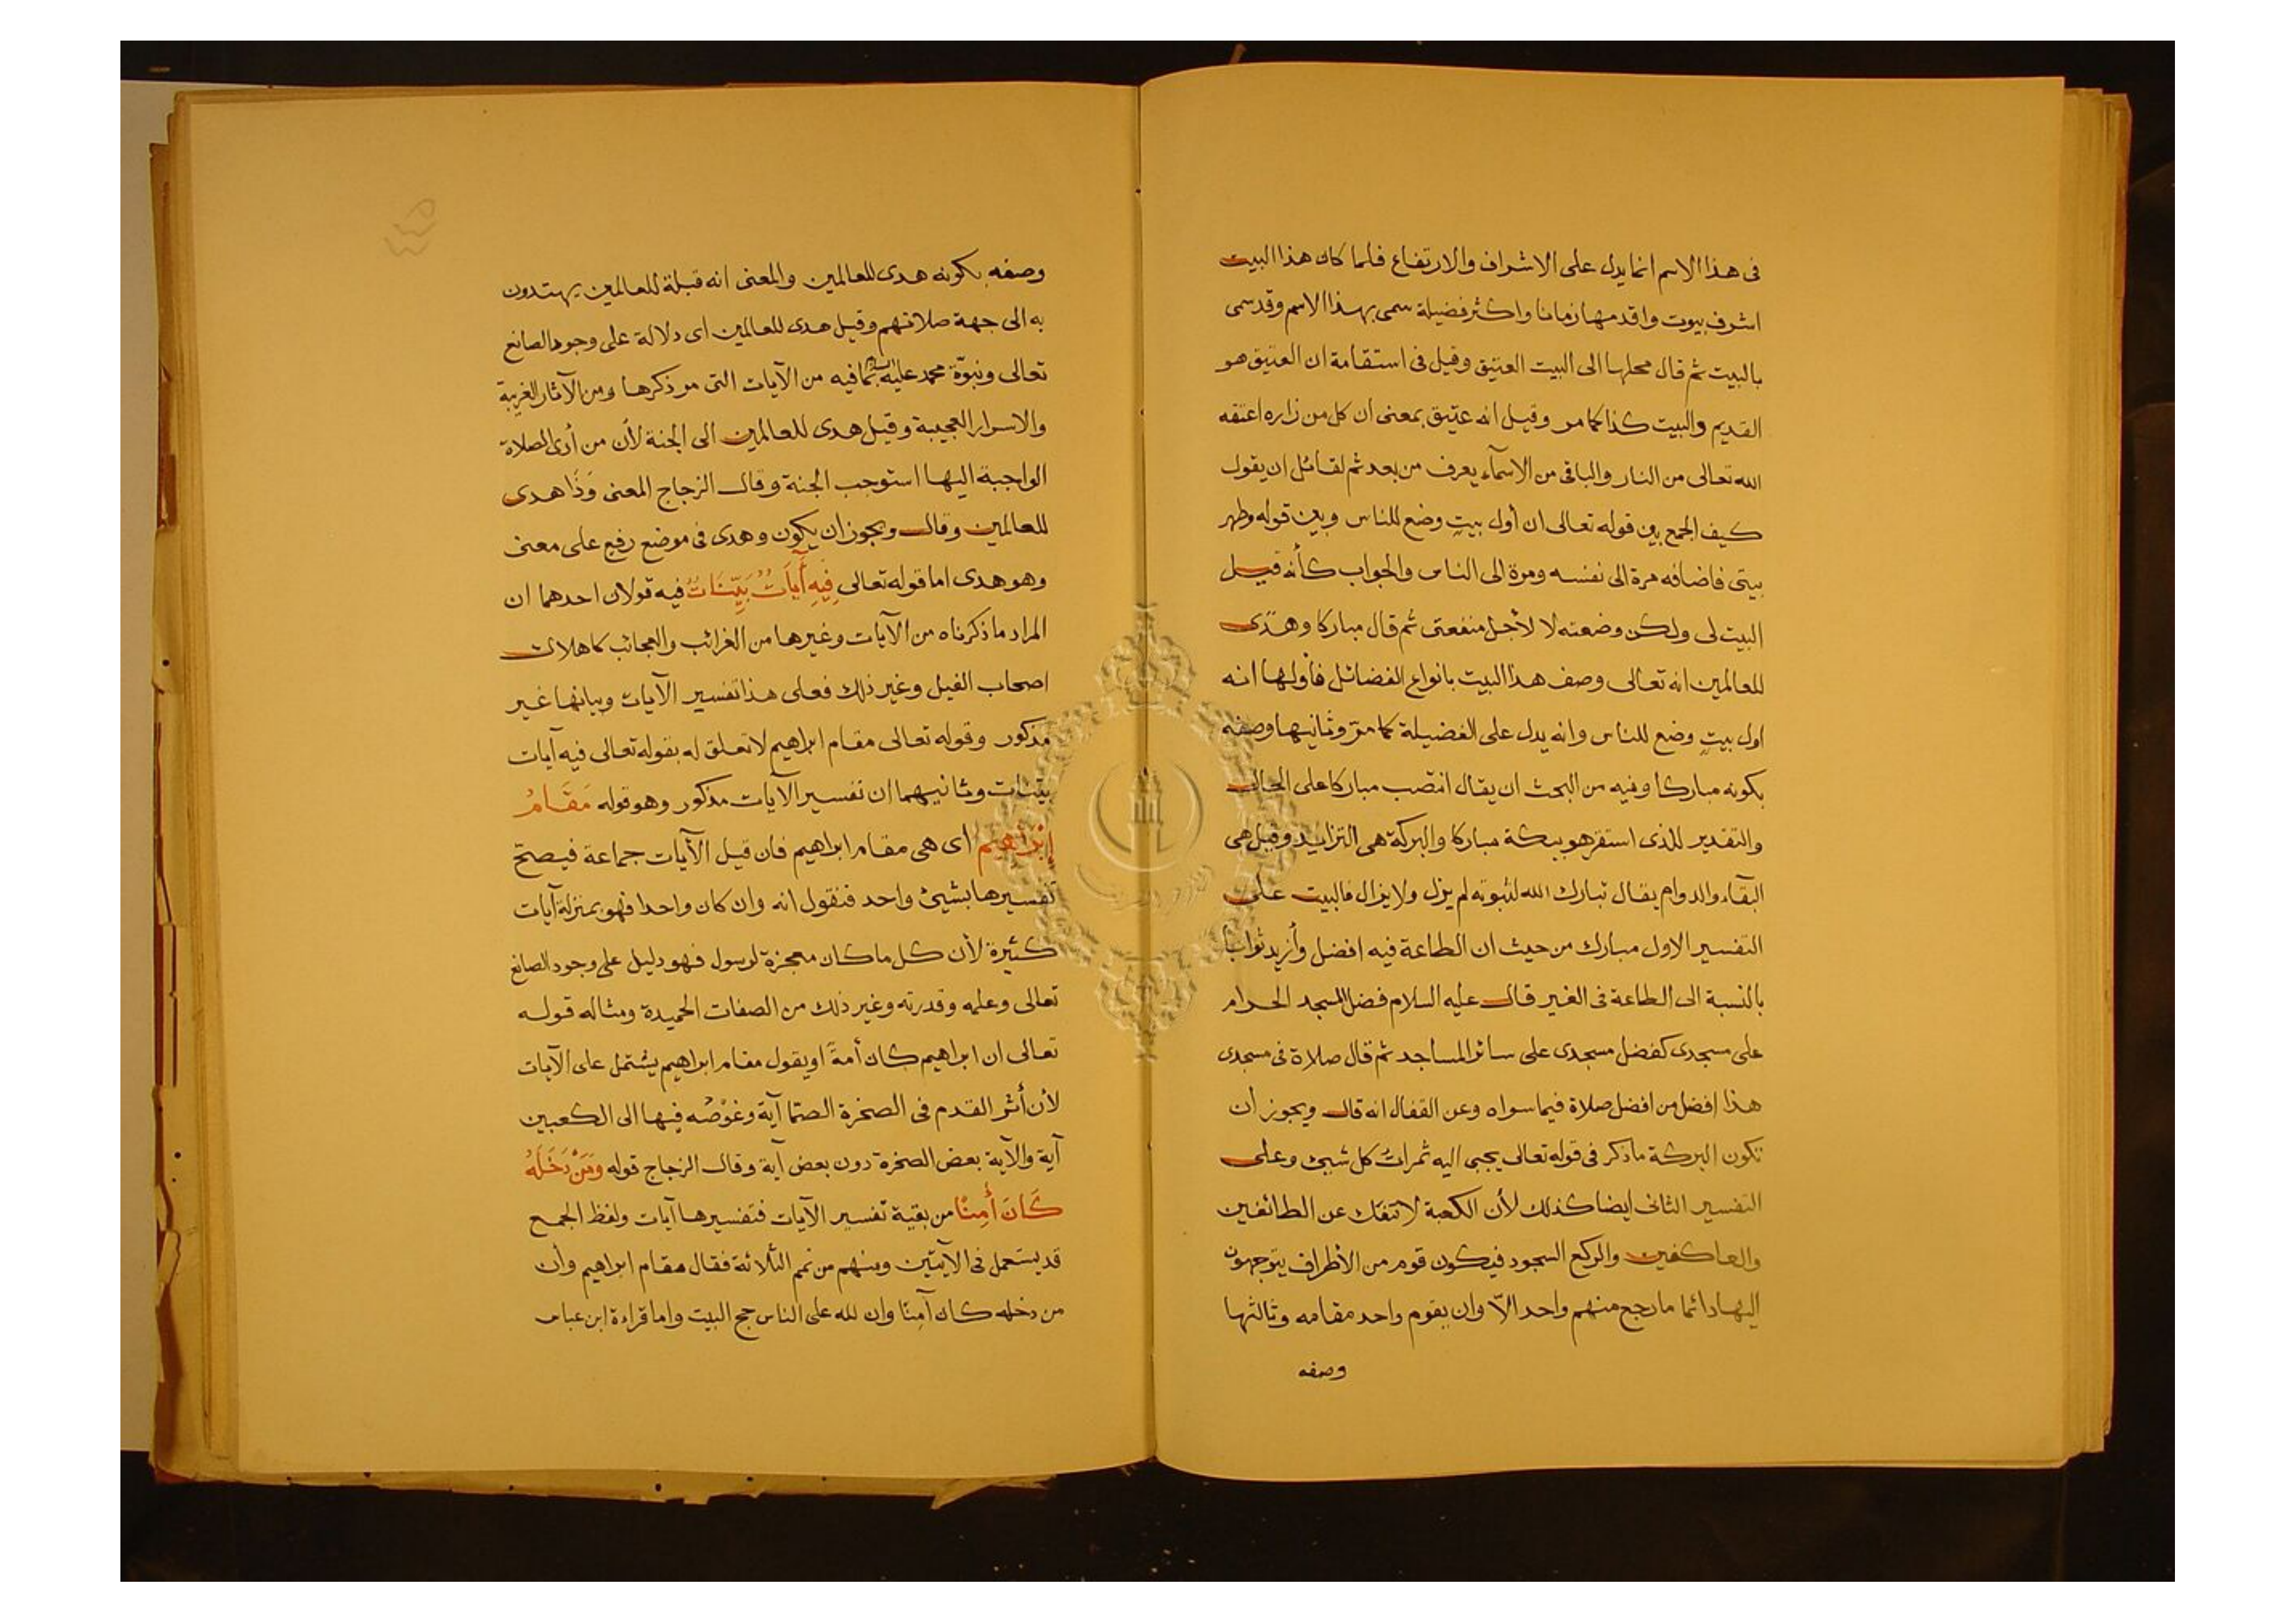 فى هذا الاسم انما يدل على الاشراف والارتفاع فلما كان هذا البيت
اشرف بيوت واقدمها زمانا واكثر فضيلة سمى بهذا الاسم وقد سمى
بالبيت ثم قال محلها الى البيت العتيق وقيل فى استقامة ان العتيق هو
القديم والبيت كذا كما مر وقيل انه عتيق بمعنى ان كل من زاره اعتقه
الله تعالى من النار والباقى من الاسمآء يعرف من بعد ثم لقائل ان يقول
كيف الجمع بين قوله تعالى ان أول بيتٍ وضع للناس وبين قوله وطهر
بيتى فاضافه مرة الى نفسه ومرة الى الناس والجواب كأنه قيل
البيت لى ولكن وضعته لا لأجل منفعتى ثم قال مباركا وهدًى
للعالمين انه تعالى وصف هذا البيت بانواع الفضائل فأولها انه
اول بيتٍ وضع للناس وانه يدل على الفضيلة كما مرّ وثانيها وصفه
بكونه مباركا وفيه من البحث ان يقال انتصب مباركا على الحال
والتقدير للذى استقر هو ببكة مباركا والبركة هى التزايد وقيل هى
البقآء والدوام يقال تبارك الله لثبوته لم يزل ولا يزال فالبيت على
التفسير الاول مبارك من حيث ان الطاعة فيه افضل وأزيد ثوابا
بالنسبة الى الطاعة فى الغير قال عليه السلام فضل المسجد الحرام
على مسجدى كفضل مسجدى على سائر المساجد ثم قال صلاة فى مسجدى
هذا افضل من افضل صلاة فيما سواه وعن القفال انه قال ويجوز أن
تكون البركة ما ذكر فى قوله تعالى يجبى اليه ثمراتُ كل شيئ وعلى
التفسير الثانى ايضا كذلك لأن الكعبة لا تنفك عن الطائفين
والعاكفين والركع السجود فيكون قوم من الأطراف يتوجهون
اليها دائما ما رجع منهم واحد الاّ وان يقوم واحد مقامه وثالثها
وصفه
وصفه بكونه هدى للعالمين والمعنى انه قبلة للعالمين يهتدون
به الى جهة صلاتهم وقيل هدى للعالمين اى دلالة على وجود الصانع
تعالى ونبوّة محمد عليه بما فيه من الآيات التى مر ذكرها ومن الآثار الغريبة
والاسرار العجيبة وقيل هدى للعالمين الى الجنة لأن من أدى الصلاة
الواجبة اليها استوجب الجنة وقال الزجاج المعنى وَذَا هدى
للعالمين وقال ويجوز ان يكون وهدى فى موضع رفع على معنى
وهو هدى اما قوله تعالى فِيهِ أَيَاتٌ بَيِّنَاتٌ فيه قولان احدهما ان
المراد ما ذكرناه من الآيات وغيرها من الغرائب والعجائب كاهلاك
اصحاب الفيل وغير ذلك فعلى هذا تفسير الآيات وبيانها غير
مذكور وقوله تعالى مقام ابراهيم لا تعلق له بقوله تعالى فيه آيات
بينات وثانيهما ان تفسير الآيات مذكور وهو قوله مَقَامُ
إِبْرَاهِيم اى هى مقام ابراهيم فان قيل الآيات جماعة فيصحّ
تفسيرها بشيئ واحد فنقول انه وان كان واحدا فهو بمنزلة آيات
كثيرة لأن كل ما كان معجزة لرسول فهو دليل على وجود الصانع
تعالى وعلمه وقدرته وغير ذلك من الصفات الحميدة ومثاله قوله
تعالى ان ابراهيم كان أمةً او يقول مقام ابراهيم يشتمل على الآيات
لأن أثر القدم فى الصخرة الصمّا آية وغوْصُه فيها الى الكعبين
آية والآية بعض الصخرة دون بعض آية وقال الزجاج قوله وَمَنْ دَخَلَهُ
كَانَ أَمِنًا من بقية تفسير الآيات فتفسيرها آيات ولفظ الجمع
قد يستعمل فى الآيتين ومنهم من تمم الثلاثة فقال مقام ابراهيم وأن
من دخله كان آمِنًا وان لله على الناس حج البيت واما قراءة ابن عباس